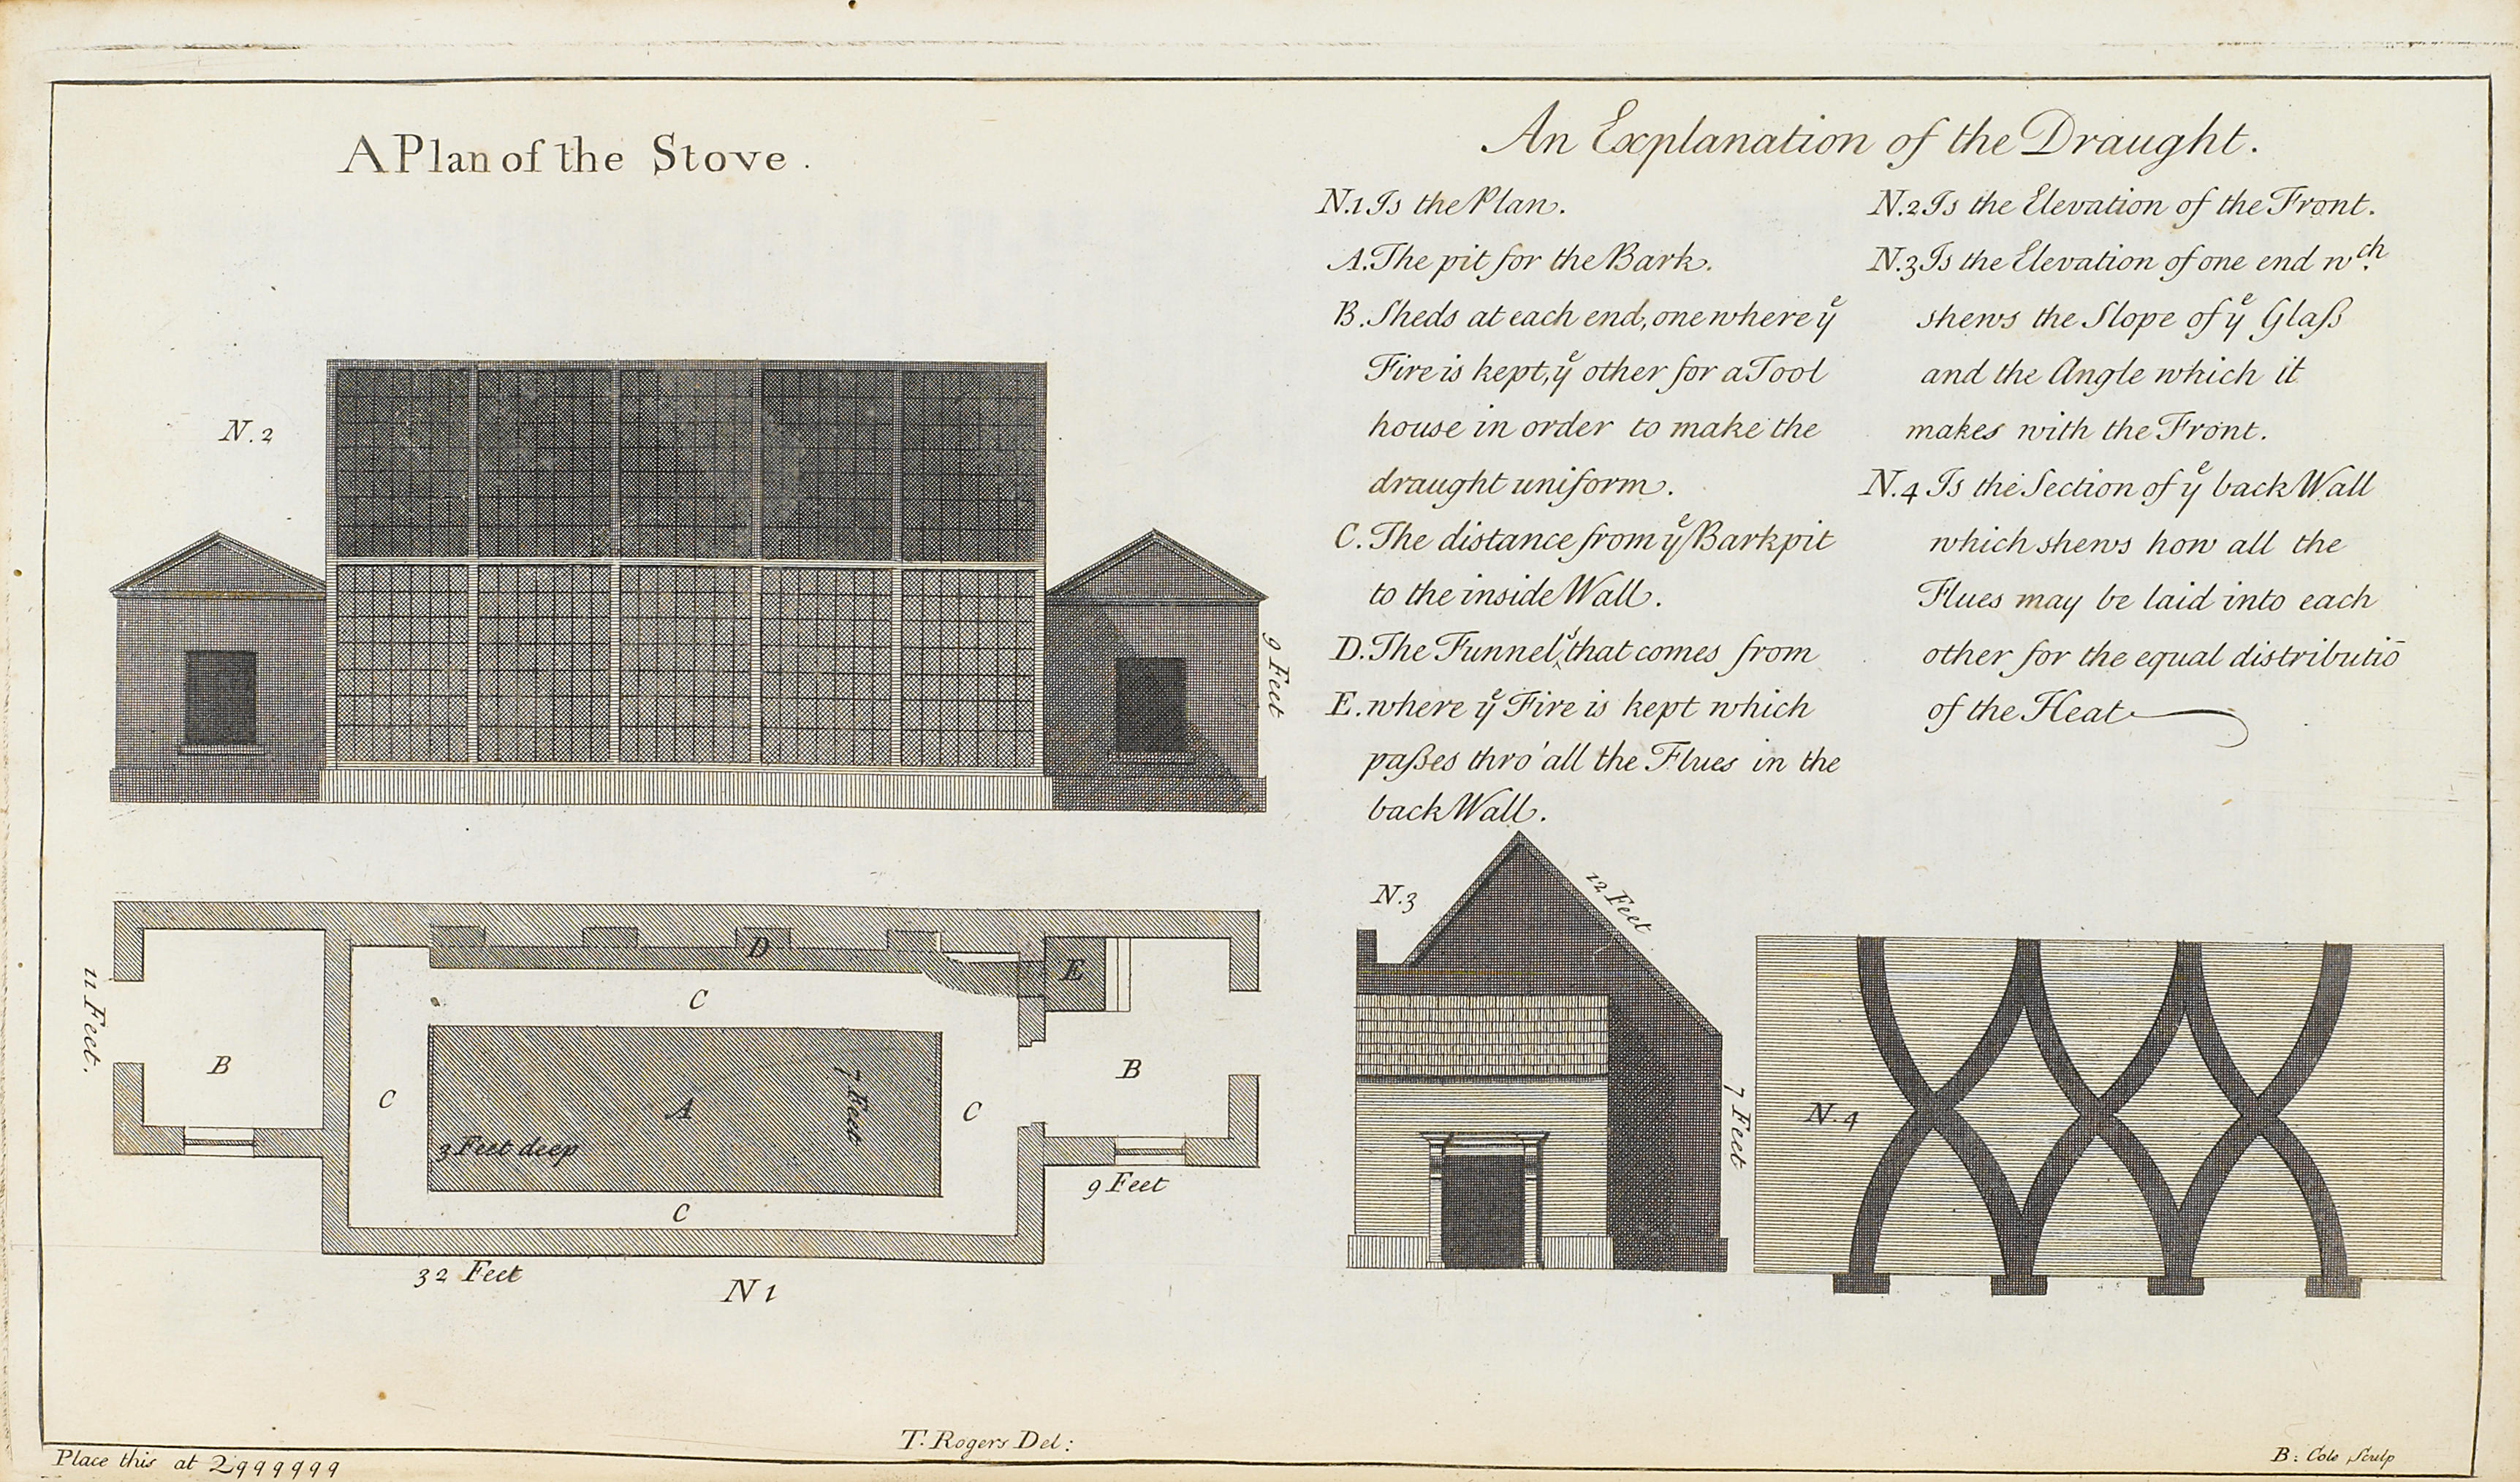 A Plan of the Stove.
N. 2
9 Feet
An Explanation of the Draught.
N.1 Is the Plan.
A. The pit for the Bark.
B. Sheds at each end, one where yͤ
Fire is kept, yͤ other for a Tool
house in order to make the
draught uniform.
C. The distance from yͤ Barkpit
to the inside Wall.
D. The Funnel,ˢ that comes from
E. where yͤ Fire is kept which
paßes thro' all the Flues in the
back Wall.
N.2 Is the Elevation of the Front.
N.3 Is the Elevation of one end wᶜʰ.
shews the Slope of yͤ Glaß
and the Angle which it
makes with the Front.
N.4 Is the Section of yͤ back Wall
which shews how all the
Flues may be laid into each
other for the equal distributiō
of the Heat
11 Feet.
B
C
D
C
A
7 Feet
3 Feet deep
C
C
E
B
9 Feet
32 Feet
N 1
N. 3
12 Feet
7 Feet
N. 4
Place this at 2999999
T. Rogers Del:
B: Cole Sculp